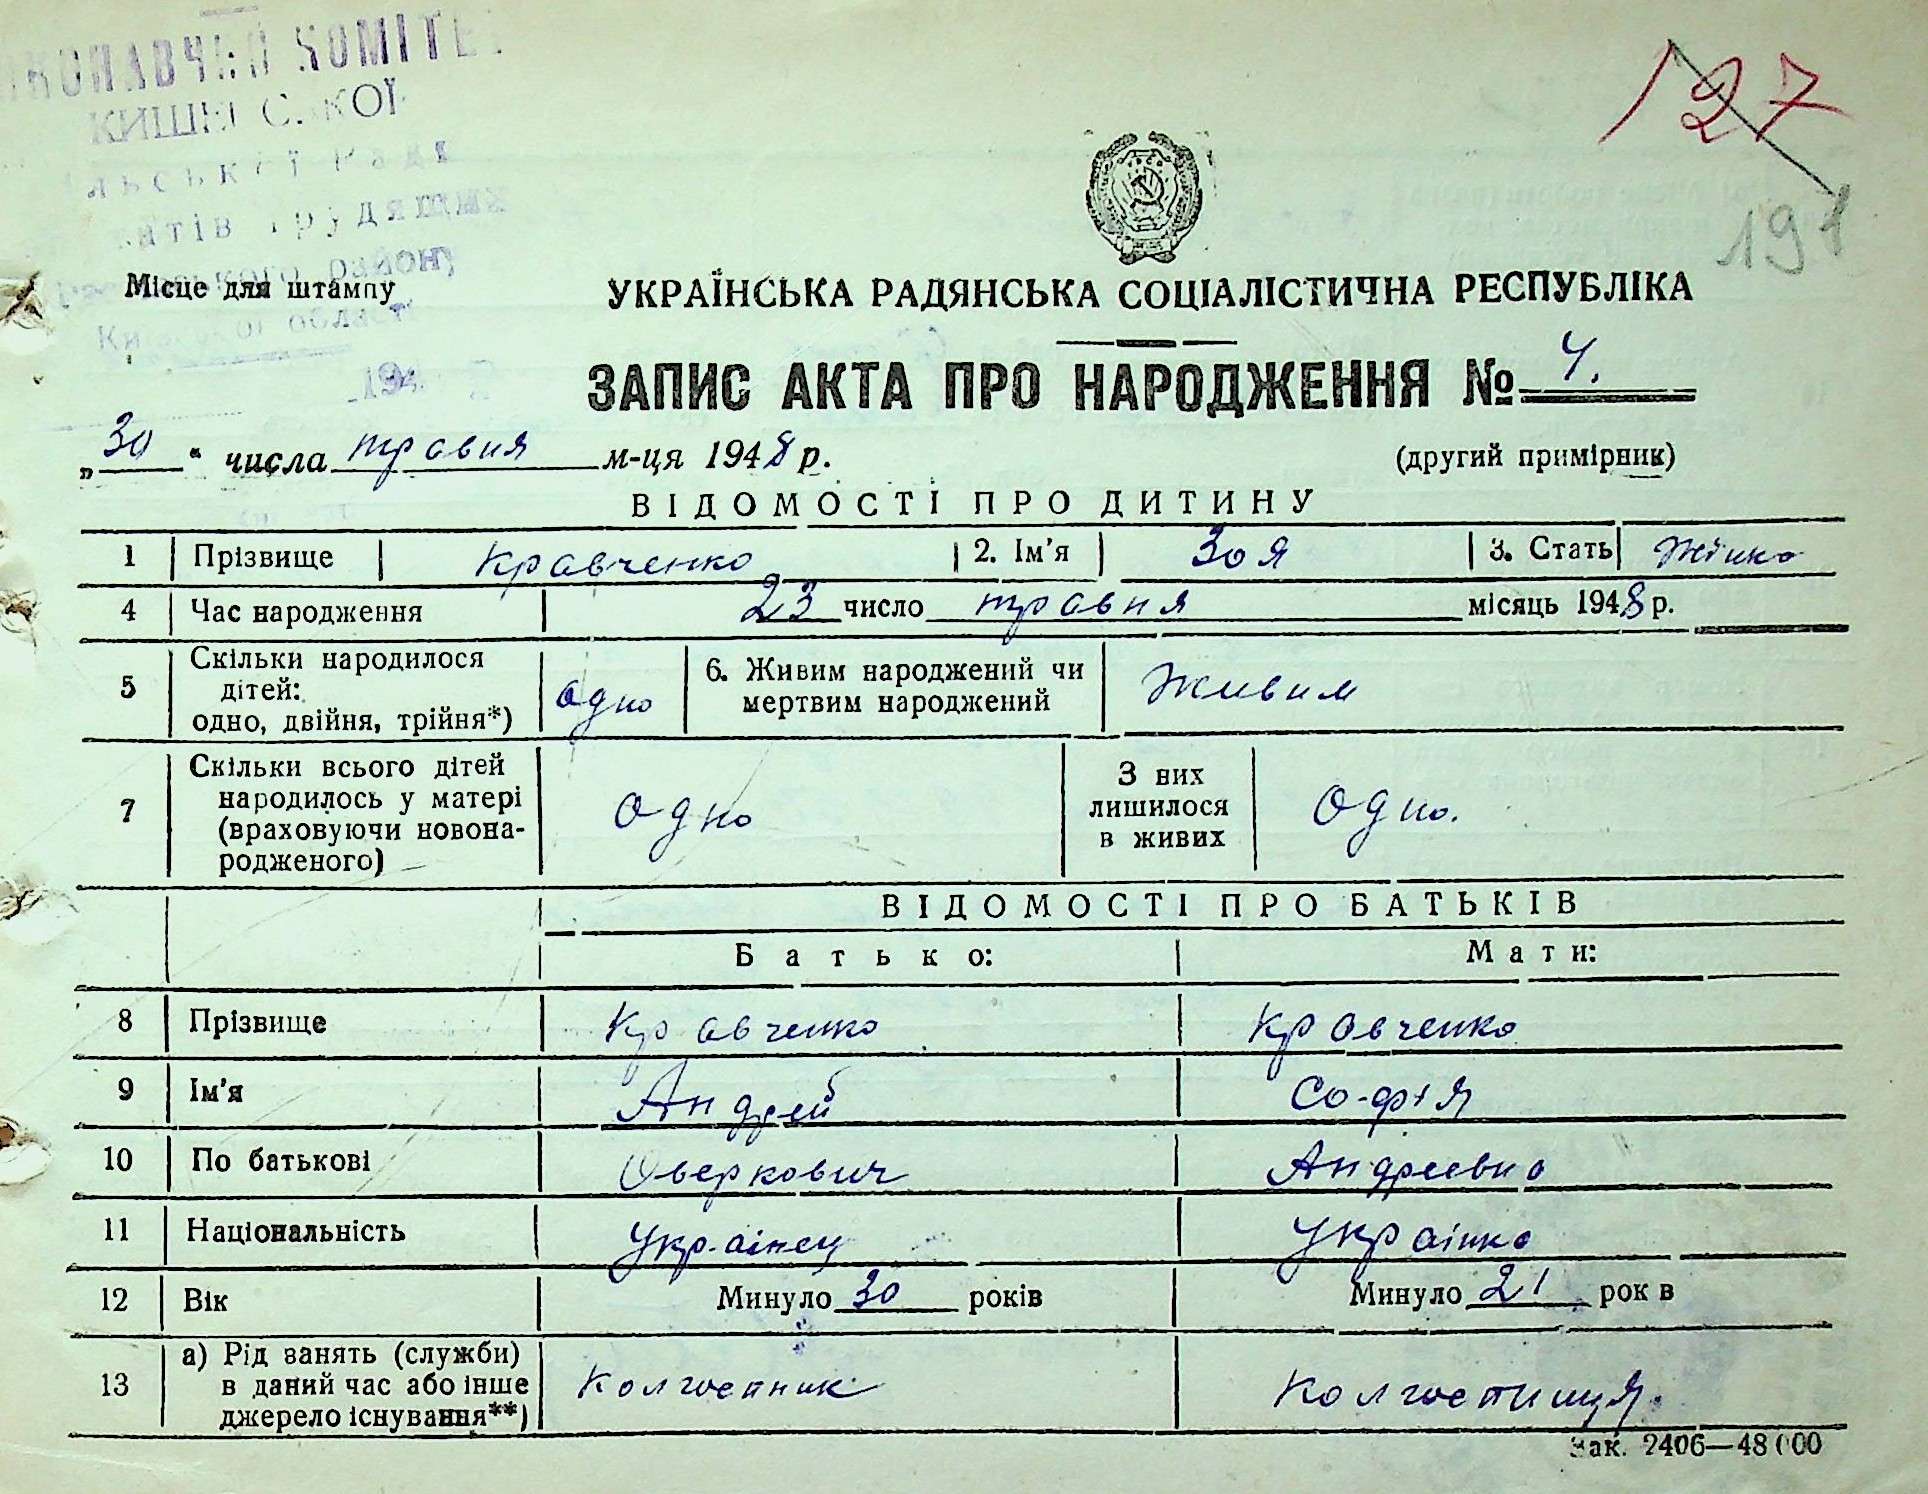 КОМІТЕ
районУ
області
194
127
191
Місце для штампу
УКРАЇНСЬКА РАДЯНСЬКА СОЦІАЛІСТИЧНА РЕСПУБЛІКА
ЗАПИС АКТА ПРО НАРОДЖЕННЯ № 4.
„30“ числа травня м-ця 1948 р. (другий примірник)
ВІДОМОСТІ ПРО ДИТИНУ
1 Прізвище Кравченко 2. Ім'я Зоя 3. Стать Жінка
4 Час народження 23 число травня місяць 1948 р.
5 Скільки народилося дітей: одно, двійня, трійня*) одно 6. Живим народжений чи мертвим народжений Живим
7 Скільки всього дітей народилось у матері (враховуючи новона-родженого) Одно З них лишилося в живих Одно.
ВІДОМОСТІ ПРО БАТЬКІВ
Батько: Мати:
8 Прізвище Кравченко Кравченко
9 Ім'я Андрей Софія
10 По батькові Оверкович Андреевна
11 Національність Українец Українка
12 Вік Минуло 30 років Минуло 21 рок в
13 а) Рід занять (служби) в даний час або інше джерело існування**) Колгоспник Колгоспниця.
Зак. 2406—48000